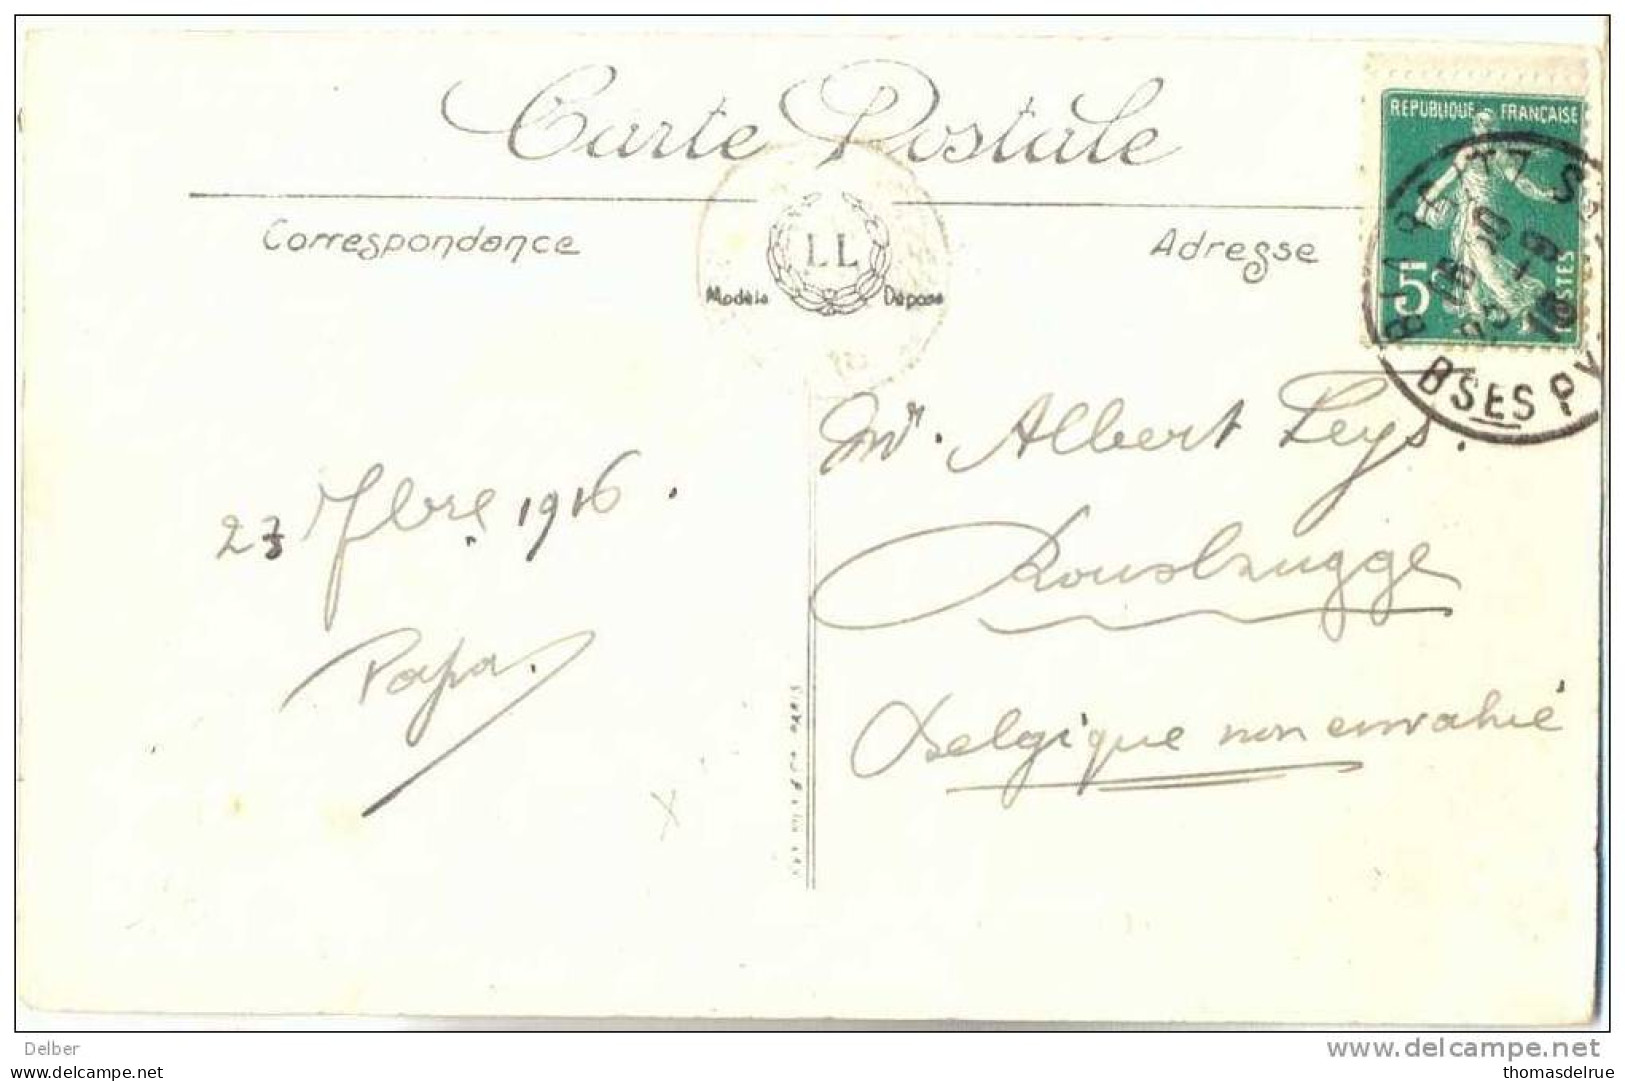 Carte Postale
Correspondance
Adresse
LL
Modèle Déposé
REPUBLIQUE FRANÇAISE
5c
POSTES
BIARRITZ
BSES PY
23 7bre 1916.
Papa.
Mr. Albert Leys.
Rousbrugge
Belgique non envahie
Delber
www.delcampe.net
thomasdelrue